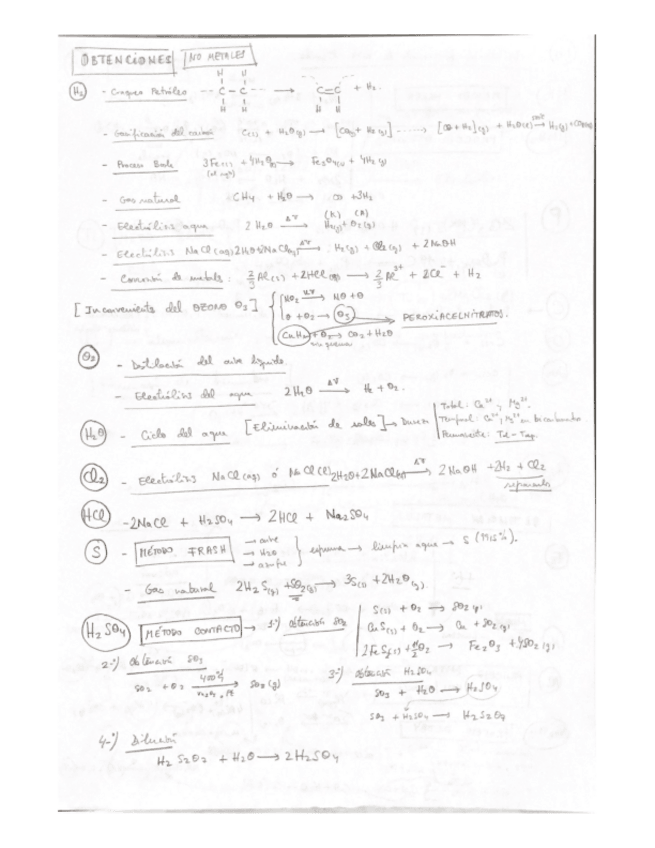 OBTENCIONES NO METALES
H2 - Craqueo Petróleo --C-C-- → C=C + H2.
H H H H
- Gasificación del carbón C(s) + H2O(g) → [CO(g) + H2(g)] ...... → [CO + H2](g) + H2O(g) → H2(g) + CO2(g)
- Proceso Bosch 3Fe(s) + 4H2O(g) → Fe3O4(s) + 4H2(g)
- Gas natural CH4 + H2O → CO + 3H2
- Electrólisis agua 2H2O → H2(g) + O2(g)
- Electrólisis NaCl(aq) 2H2O + 2NaCl → H2(g) + Cl2(g) + 2NaOH
- Corrosión de metales: 2/3 Al(s) + 2HCl → 2/3 Al3+ + 2Cl- + H2
[Inconveniente del OZONO O3] NO2 → NO + O
O + O2 → O3 PEROXIACELNITRATOS.
CnHm + O2 → CO2 + H2O
O2 - Destilación del aire líquido
- Electrólisis del agua 2H2O → H2 + O2.
H2O - Ciclo del agua [Eliminación de sales] → Dureza Total: Ca2+, Mg2+.
Temporal: Ca2+, Mg2+ en bicarbonatos
Permanente: Tot - Temp.
Cl2 - Electrólisis NaCl(aq) ó NaCl(l) 2H2O + 2NaCl → 2NaOH + H2 + Cl2
separarlos
HCl - 2NaCl + H2SO4 → 2HCl + Na2SO4
S - MÉTODO FRASH → aire
→ H2O
→ azufre
espuma → limpia agua → S
- Gas natural 2H2S(g) + SO2(g) → 3S(s) + 2H2O(g)
H2SO4 MÉTODO CONTACTO → 1º) obtención SO2 S(s) + O2 → SO2(g)
CuS(s) + O2 → Cu + SO2(g)
2FeS2(s) + 11/2 O2 → Fe2O3 + 4SO2(g)
2º) obtención SO3
SO2 + O2 → SO3(g)
400ºC
V2O5, Pt
3º) obtención H2SO4
SO3 + H2O → H2SO4
SO3 + H2SO4 → H2S2O7
4º) Dilución
H2S2O7 + H2O → 2H2SO4